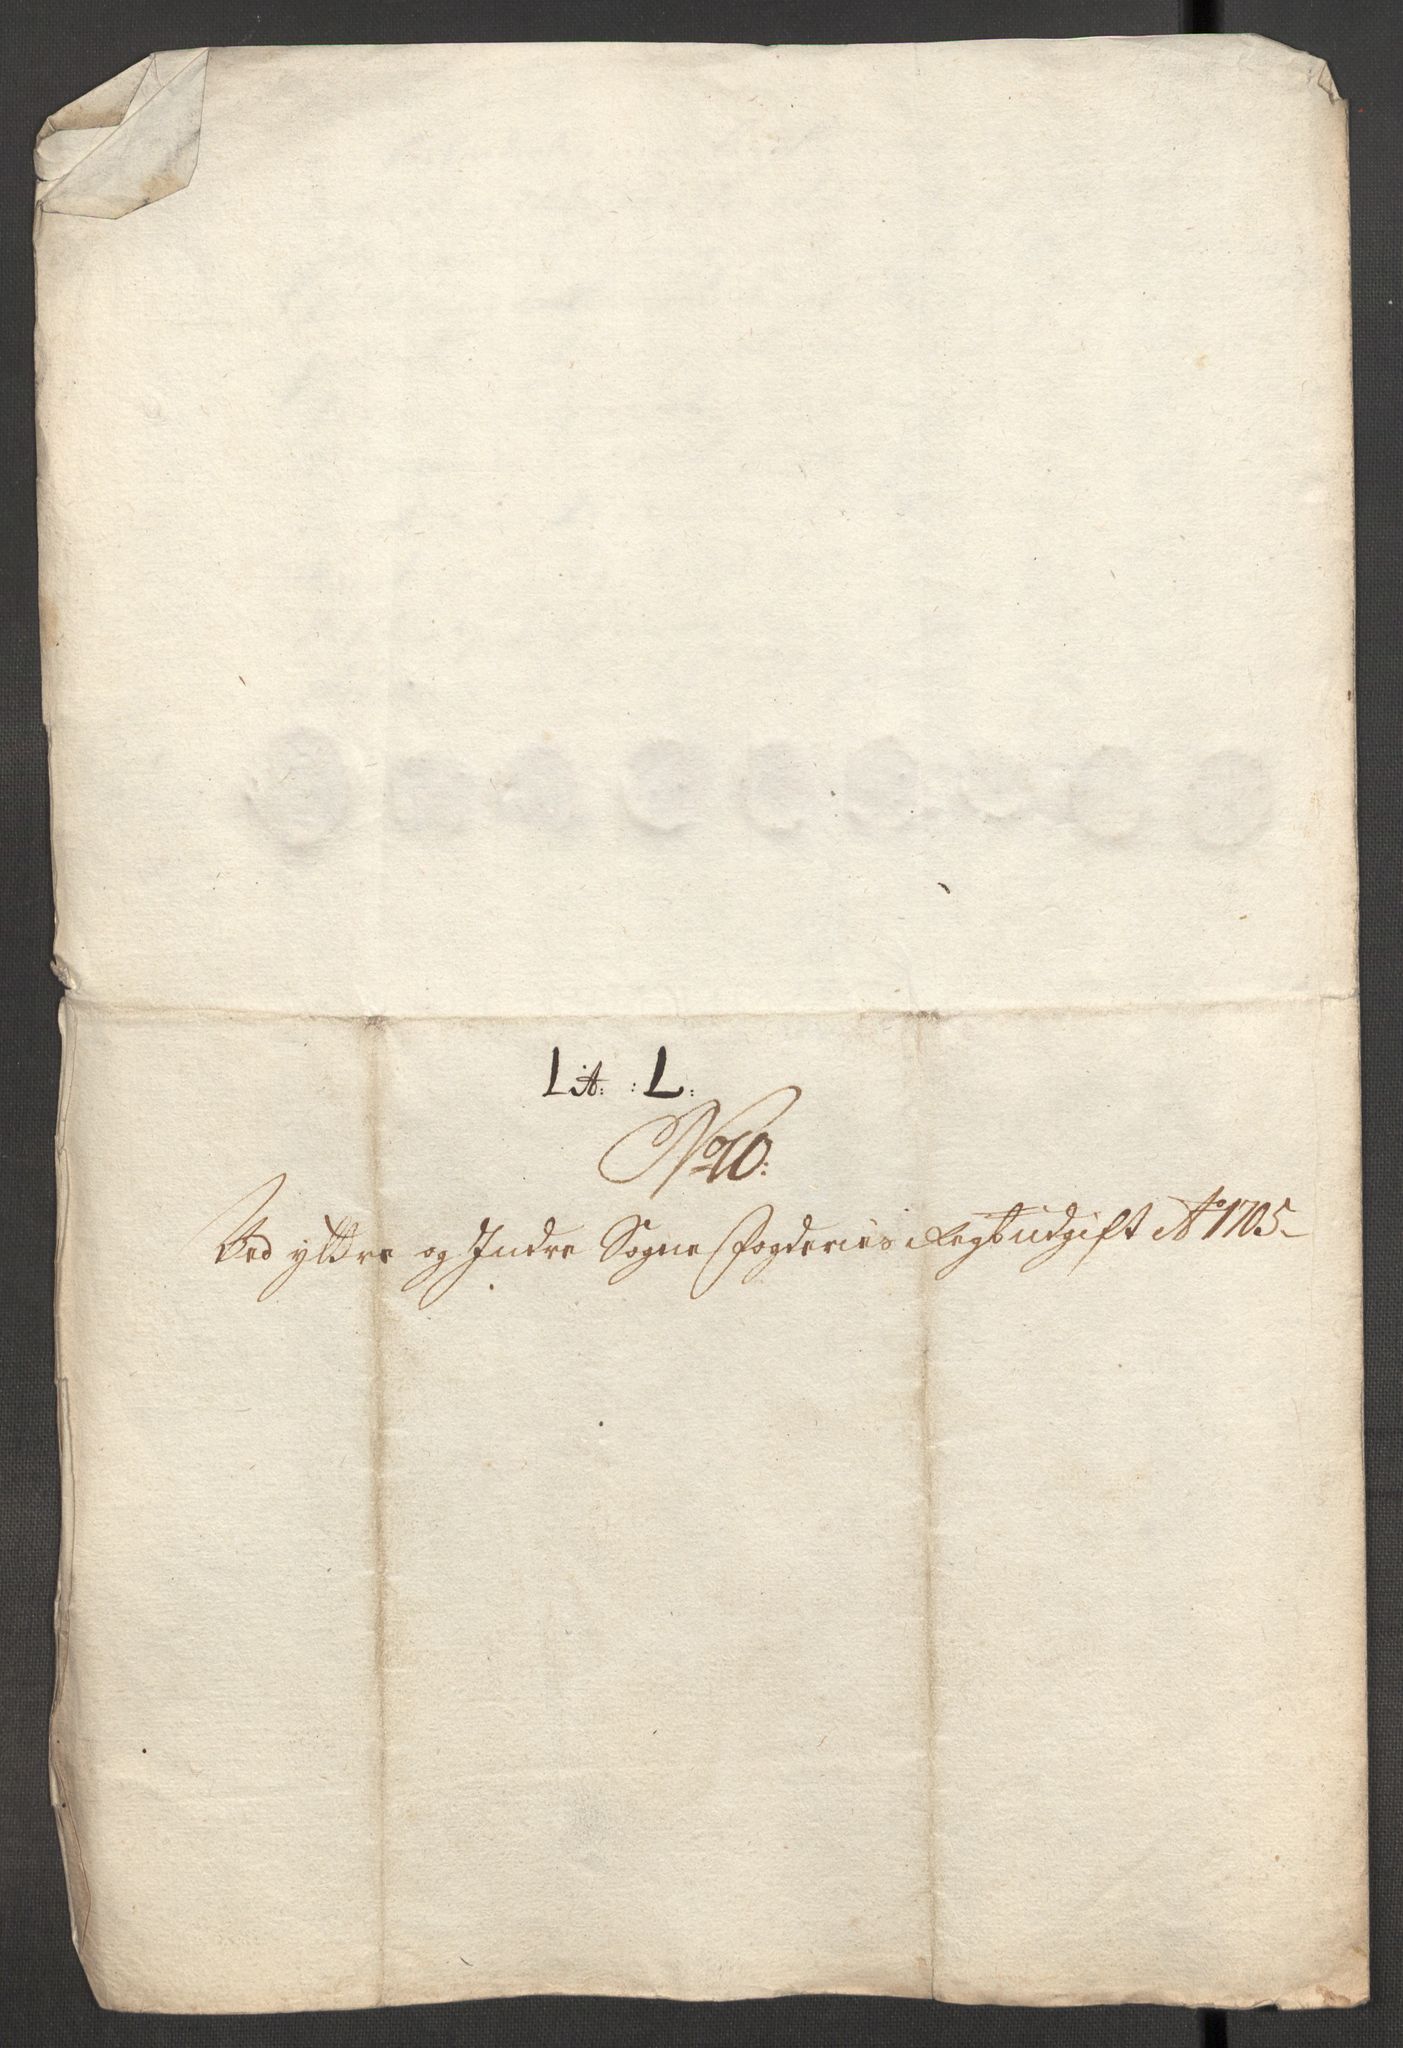 Lit: :L:
No 10:
Ved yttre og Indre Sogne Fogderies Regb udgift Ao 1705